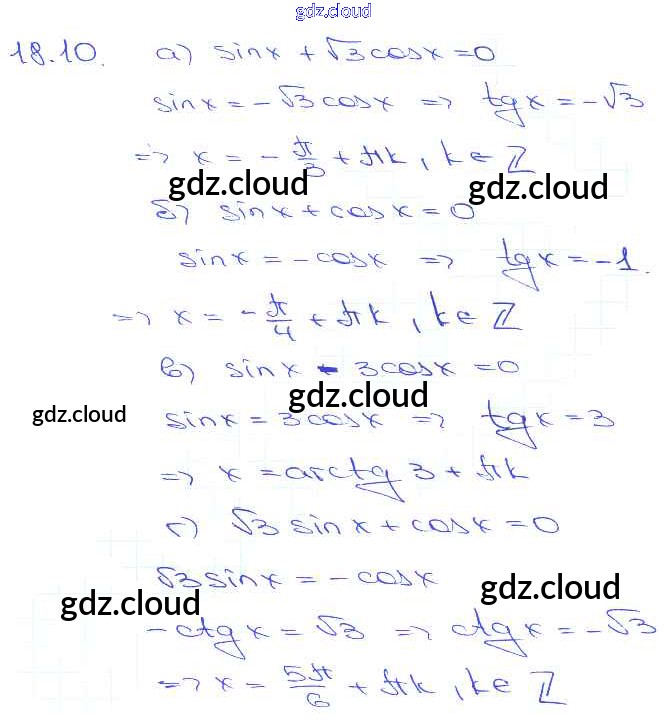 gdz.cloud
18.10. а) sinx + √3 cosx = 0
sinx = -√3 cosx => tgx = -√3
=> x = -π/3 + πk, k ∈ ℤ
gdz.cloud gdz.cloud
б) sinx + cosx = 0
sinx = -cosx => tgx = -1.
=> x = -π/4 + πk, k ∈ ℤ
в) sinx - 3cosx = 0
gdz.cloud gdz.cloud
sinx = 3cosx => tgx = 3
=> x = arctg 3 + πk
г) √3 sinx + cosx = 0
√3 sinx = -cosx
gdz.cloud gdz.cloud
-ctgx = √3 => ctgx = -√3
=> x = 5π/6 + πk, k ∈ ℤ